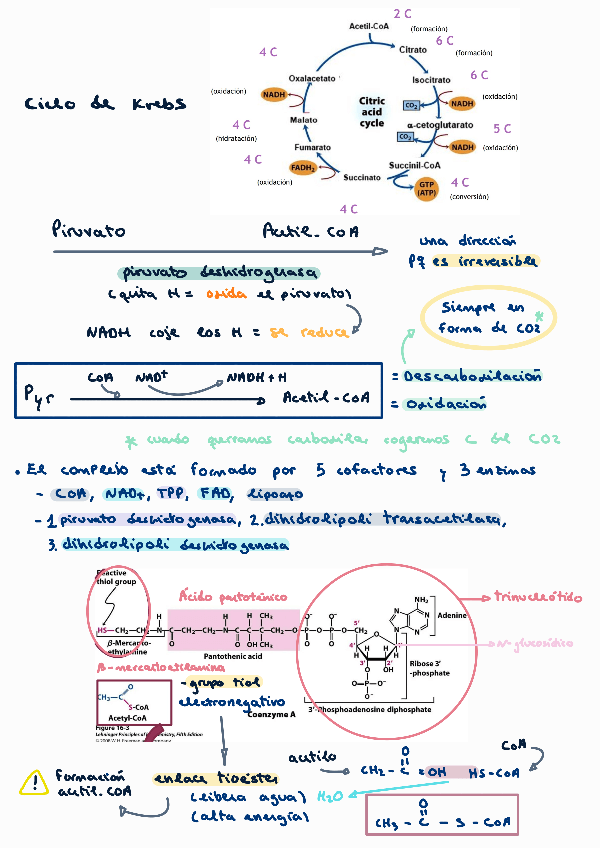 Ciclo de Krebs
2 C
Acetil-CoA
(formación)
4 C
Citrato
6 C
(formación)
Oxalacetato
Isocitrato
6 C
(oxidación)
NADH
Citric
acid
cycle
CO₂
NADH
(oxidación)
4 C
Malato
α-cetoglutarato
5 C
(hidratación)
CO₂
Fumarato
NADH
(oxidación)
4 C
FADH₂
Succinil-CoA
(oxidación)
Succinato
GTP
(ATP)
4 C
(conversión)
4 C
Piruvato
Acetil-CoA
una dirección
pq es irreversible
piruvato deshidrogenasa
(quita H = oxida el piruvato)
NADH coje los H = se reduce
Siempre en
forma de CO2 *
Pyr
CoA
NAD+
NADH + H
Acetil-CoA
= Descarboxilación
= Oxidación
* cuando querramos carboxilar cogeremos C del CO2
• El complejo está formado por 5 cofactores y 3 enzimas
- CoA, NAD+, TPP, FAD, lipoato
- 1. piruvato deshidrogenasa, 2. dihidrolipoli transacetilasa,
3. dihidrolipoli deshidrogenasa
Reactive
thiol group
Ácido pantoténico
trinucleótido
NH₂
Adenine
HS—CH₂—CH₂
β-Mercapto-
ethylamine
Pantothenic acid
N-glucosídico
Ribose 3′
-phosphate
β-mercaptoetilamina
3′-Phosphoadenosine diphosphate
Coenzyme A
CH₃—C
O
S-CoA
Acetyl-CoA
- grupo tiol
electronegativo
Figure 16-3
Lehninger Principles of Biochemistry, Fifth Edition
Formación
acetil. COA
enlace tioéster
(libera agua)
(alta energía)
acetilo
CH₂ - C = OH
O
HS-CoA
CoA
H₂O
O
CH₃ - C - S - CoA